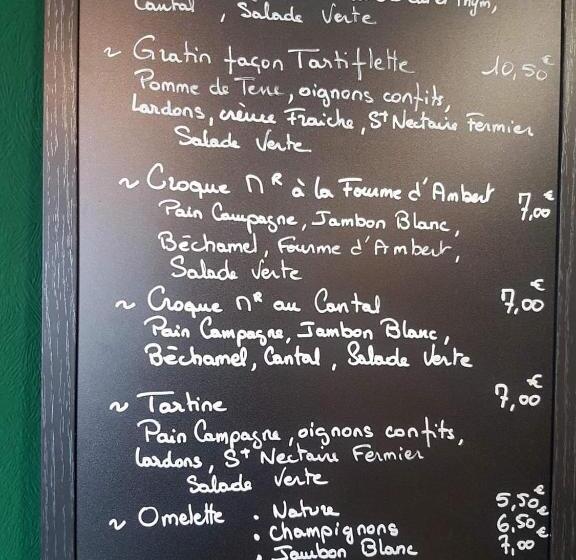 Cantal , Salade Verte
~ Gratin façon Tartiflette 10,50€
Pomme de Terre, oignons confits,
Lardons, crème Fraiche, St Nectaire Fermier
Salade Verte
~ Croque Mr à la Fourme d'Ambert 7,00€
Pain Campagne, Jambon Blanc,
Béchamel, Fourme d'Ambert,
Salade Verte
~ Croque Mr au Cantal 7,00€
Pain Campagne, Jambon Blanc,
Béchamel, Cantal, Salade Verte
~ Tartine 7,00€
Pain Campagne, oignons confits,
Lardons, St Nectaire Fermier
Salade Verte
~ Omelette . Nature 5,50€
. Champignons 6,50€
. Jambon Blanc 7,00